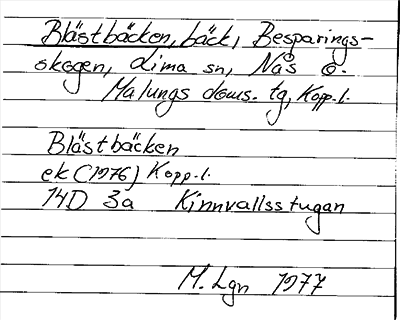 Blästbäcken, bäck, Besparings-
skogen, Lima sn, Nås o.
Malungs doms. tg, Kopp.l.
Blästbäcken
ek (1976) Kopp.l.
14D 3a Kinnvallsstugan
M. Lgn 1977